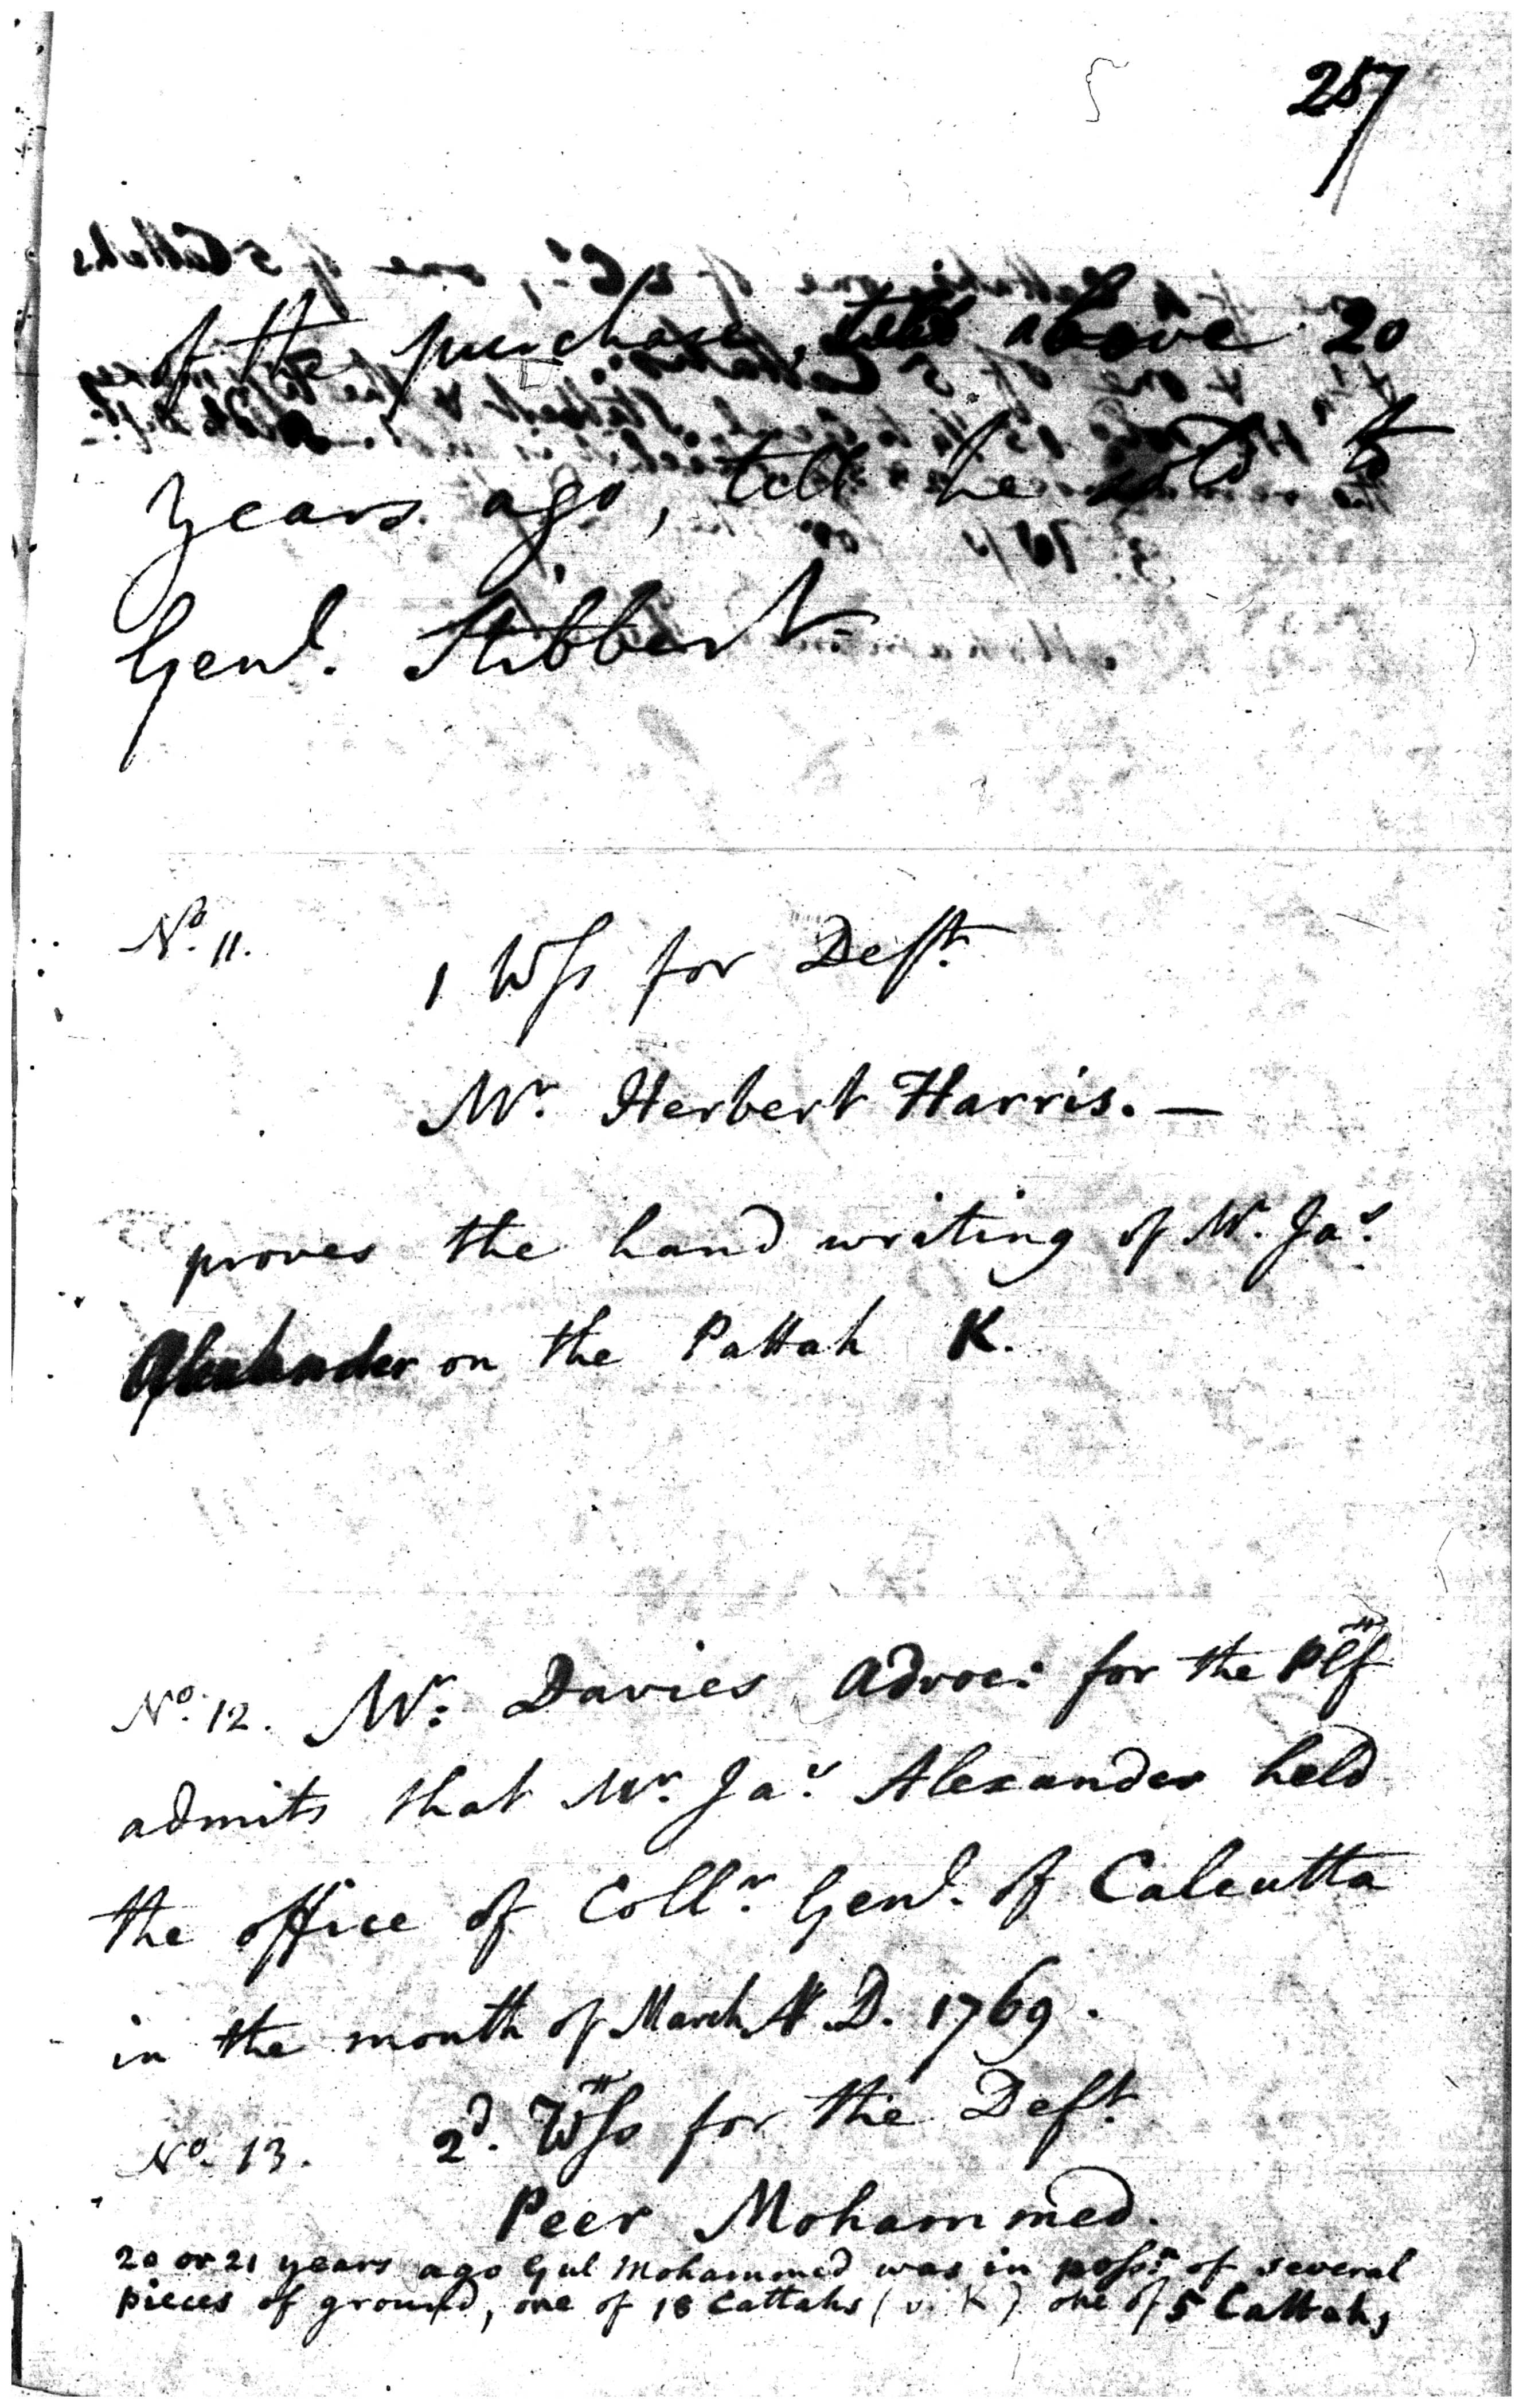 257
of the purchase, above 20
years ago, till he sold it to
Genl. Stibbert
No. 11.
1 Wss for Deft.
Mr. Herbert Harris. —
proves the hand writing of Mr. Jas.
Alexander on the Pattah K.
No. 12. Mr. Davies Advoc: for the Plf
admits that Mr. Jas. Alexander held
the office of Collr. Genl. of Calcutta
in the month of March A.D. 1769.
No. 13. 2d. Wss for the Deft.
Peer Mohammed.
20 or 21 years ago Gul Mohammed was in possn. of several
pieces of ground, one of 18 Cattahs (v. K) one of 5 Cattahs,